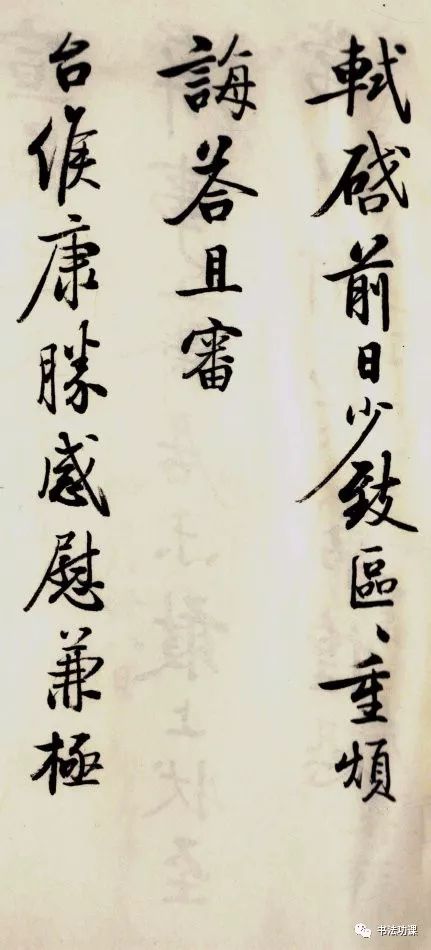 軾啓前日少致區〻重煩
誨答且審
台候康勝感慰兼極
书法功课